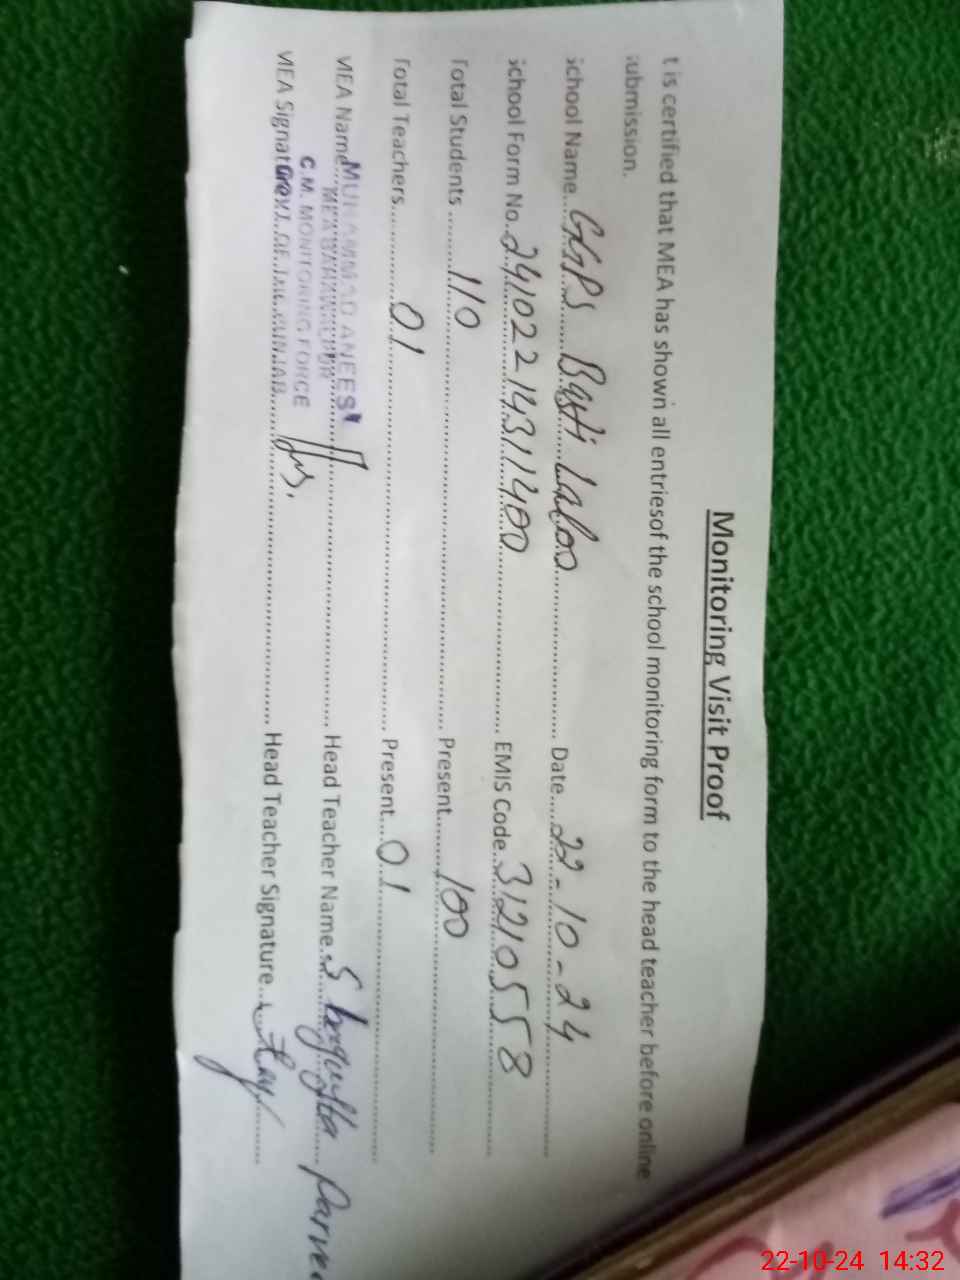 Monitoring Visit Proof
t is certified that MEA has shown all entriesof the school monitoring form to the head teacher before online
submission.
School Name....GGPS Basti Laloo.... Date....22-10-24....
School Form No..241022143111400.... EMIS Code..31210558....
Total Students....110.... Present....100....
Total Teachers....01.... Present....01....
MEA Name....MUHAMMAD ANEES.... Head Teacher Name....Shagufta Parve
MEA BAHAWALPUR
C.M. MONITORING FORCE
MEA Signat GOVT. OF THE PUNJAB.... Head Teacher Signature....
22-10-24 14:32